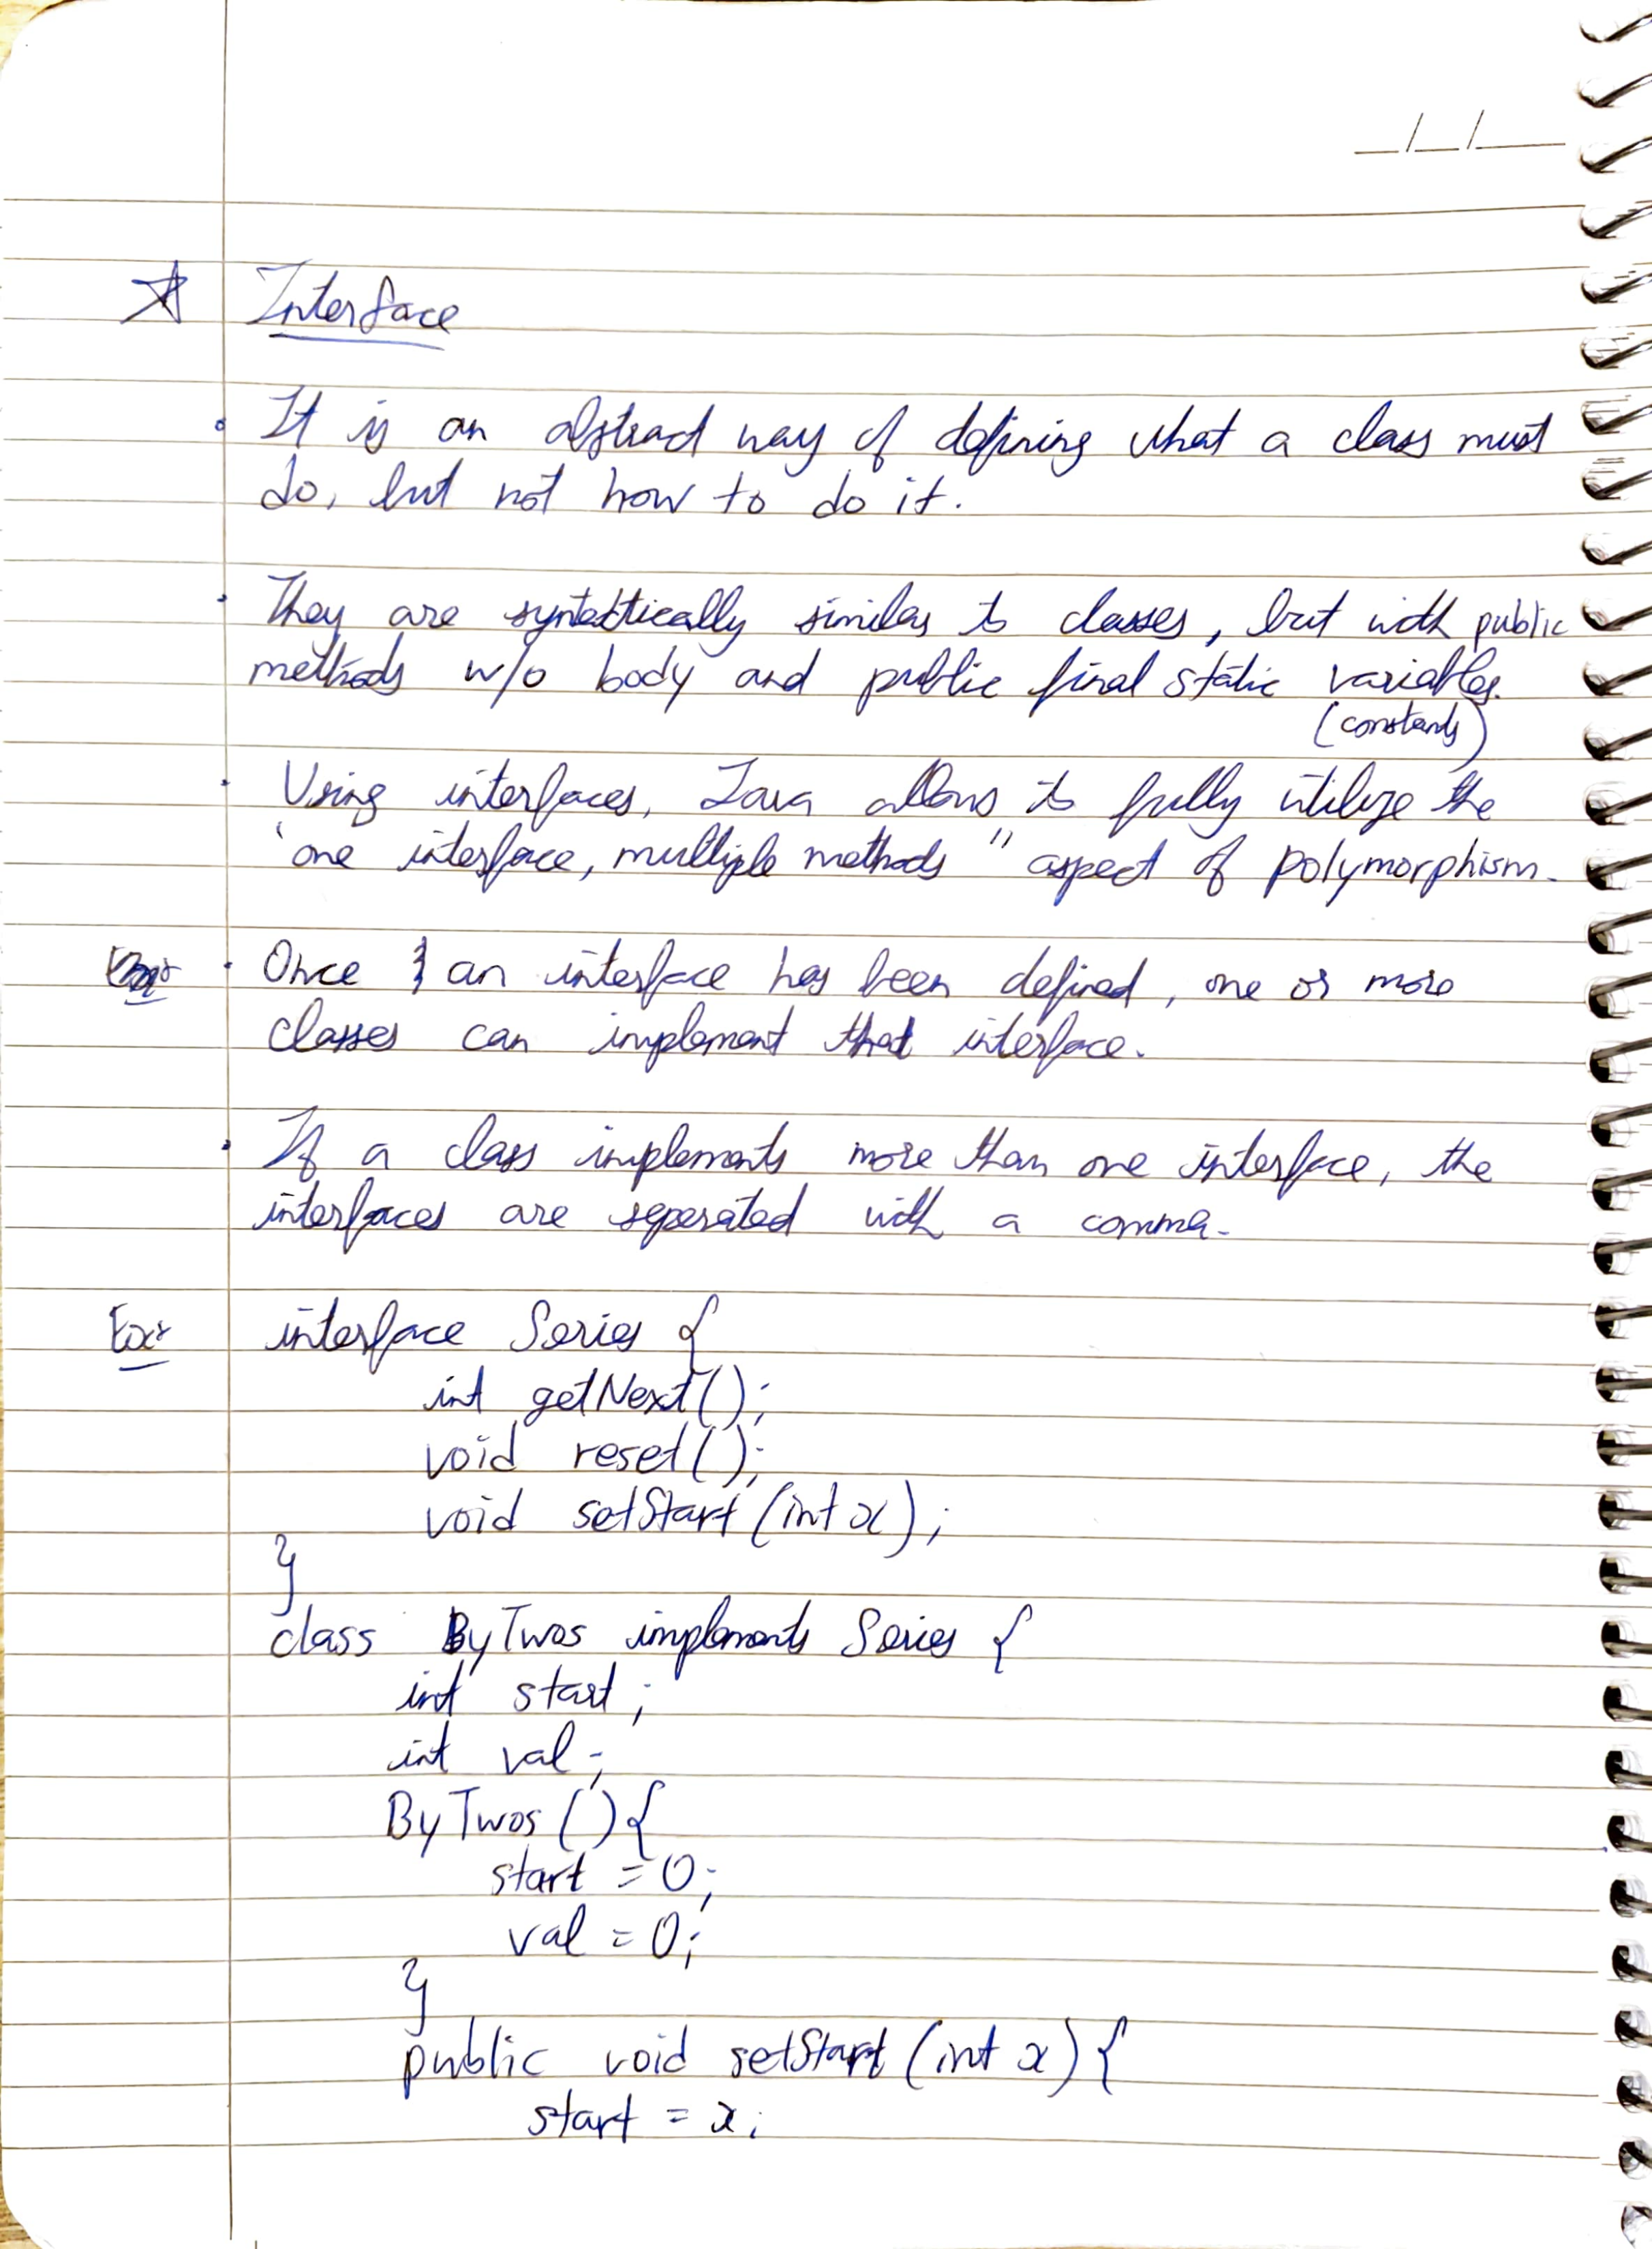 Interface
It is an abstract way of defining what a class must
do, but not how to do it.
They are syntactically similar to classes, but with public
methods w/o body and public final static variables.
(constants)
Using interfaces, Java allows to fully utilize the
"one interface, multiple methods" aspect of polymorphism.
Once an interface has been defined, one or more
classes can implement that interface.
If a class implements more than one interface, the
interfaces are seperated with a comma.
Ex: interface Series {
int getNext();
void reset();
void setStart (int x);
}
class ByTwos implements Series {
int start;
int val;
ByTwos () {
start = 0;
val = 0;
}
public void setStart (int x) {
start = x;